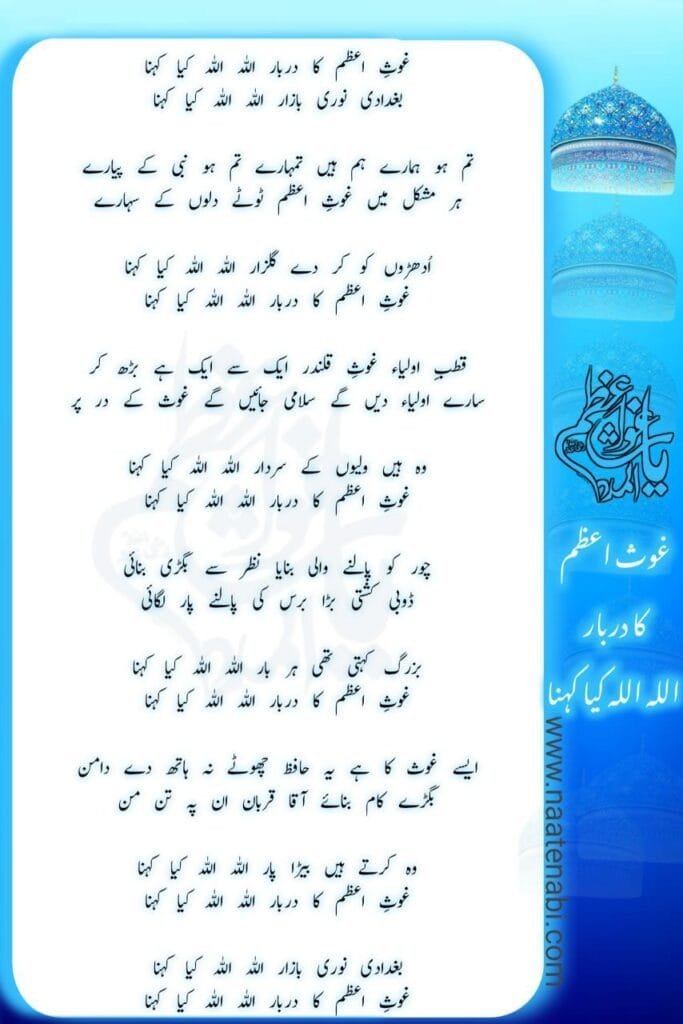 غوثِ اعظم کا دربار اللہ اللہ کیا کہنا
بغدادی نوری بازار اللہ اللہ کیا کہنا
تم ہو ہمارے ہم ہیں تمہارے تم ہو نبی کے پیارے
ہر مشکل میں غوثِ اعظم ٹوٹے دلوں کے سہارے
اُدھڑوں کو کر دے گلزار اللہ اللہ کیا کہنا
غوثِ اعظم کا دربار اللہ اللہ کیا کہنا
قطبِ اولیاء غوثِ قلندر ایک سے ایک ہے بڑھ کر
سارے اولیاء دیں گے سلامی جائیں گے غوث کے در پر
وہ ہیں ولیوں کے سردار اللہ اللہ کیا کہنا
غوثِ اعظم کا دربار اللہ اللہ کیا کہنا
چور کو پالنے والی بنایا نظر سے بگڑی بنائی
ڈوبی کشتی بڑا برس کی پالنے پار لگائی
بزرگ کہتی تھی ہر بار اللہ اللہ کیا کہنا
غوثِ اعظم کا دربار اللہ اللہ کیا کہنا
ایسے غوث کا ہے یہ حافظ چھوٹے نہ ہاتھ دے دامن
بگڑے کام بنائے آقا قربان ان پہ تن من
وہ کرتے ہیں بیڑا پار اللہ اللہ کیا کہنا
غوثِ اعظم کا دربار اللہ اللہ کیا کہنا
بغدادی نوری بازار اللہ اللہ کیا کہنا
غوثِ اعظم کا دربار اللہ اللہ کیا کہنا
غوث اعظم
کا دربار
اللہ اللہ کیا کہنا
www.naatenabi.com